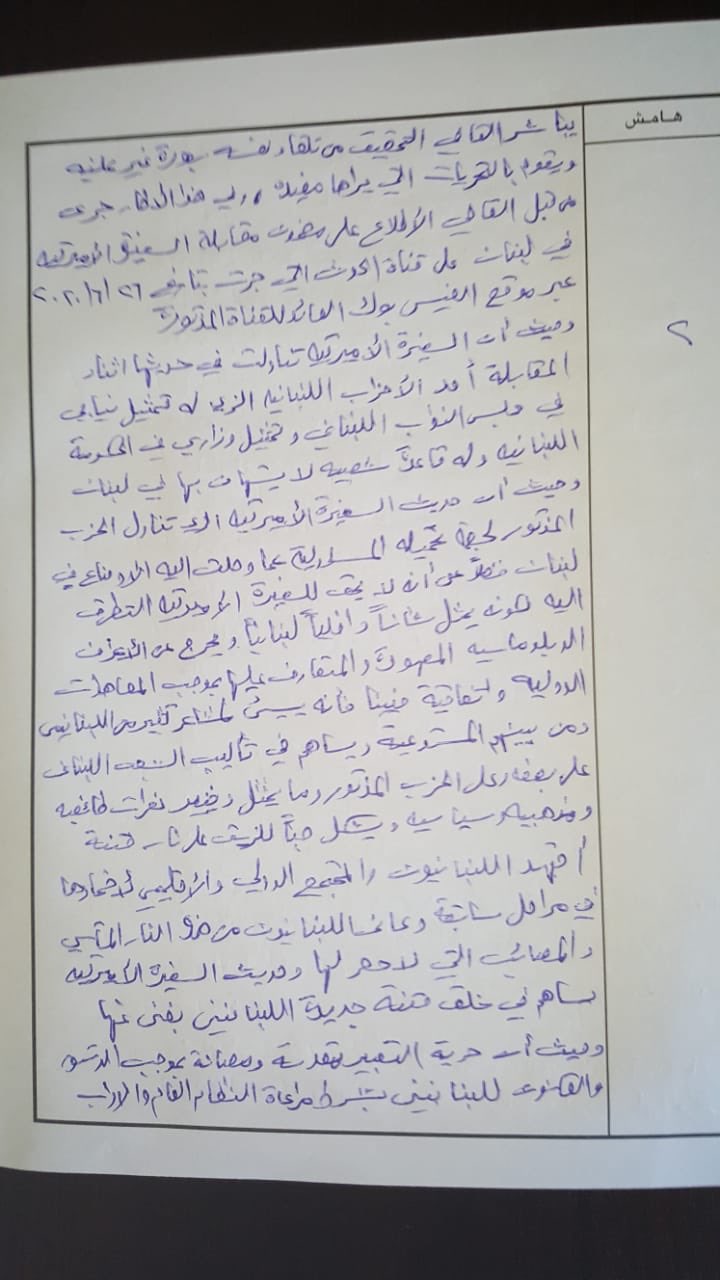 هامش
٢
يباشر القاضي التحقيق من تلقاء نفسه بصورة غير علنية
ويقوم بالتحريات التي يراها مفيدة، وفي هذا الاطار جرى
من قبل القاضي الاطلاع على مضمون مقابلة السفيرة الاميركية
في لبنان على قناة الحدث التي جرت بتاريخ ٢٦/٦/٢٠٢٠
عبر موقع الفيس بوك العائد للقناة المذكورة
وحيث أن السفيرة الاميركية تناولت في حديثها اثناء
المقابلة أحد الأحزاب اللبنانية الذي له تمثيل نيابي
في مجلس النواب اللبناني وتمثيل وزاري في الحكومة
اللبنانية وله قاعدة شعبية لا يستهان بها في لبنان
وحيث أن حديث السفيرة الأميركية الذي تناول الحزب
المذكور لجهة تحميله المسؤولية عما وصلت اليه الاوضاع في
لبنان فضلاً عن أنه لا يحق للسفيرة الاميركية التطرق
اليه كونه يمثل شأناً داخلياً لبنانياً ويخرج عن الأعراف
الدبلوماسية المعهودة والمتعارف عليها بموجب المعاهدات
الدولية واتفاقية فيينا فأنه يسيئ لمشاعر كثير من اللبنانيين
ومن بينهم المستدعية ويساهم في تأليب الشعب اللبناني
على بعضه وعلى الحزب المذكور وما يمثل ونعرات طائفية
ومذهبية وسياسية ويشكل صباً للزيت على نار فتنة
أجهد اللبنانيون والمجتمع الدولي والأقليمي لأخمادها
في مراحل سابقة وعانى اللبنانيون من هذه النار المآسي
والمصائب التي لا حصر لها وحديث السفيرة الاميركية
يساهم في خلق فتنة جديدة اللبنانيين بغنى عنها
وحيث أن حرية التعبير مقدسة ومصانة بموجب الدستور
والقانون للبنانيين بشرط مراعاة النظام العام والاداب